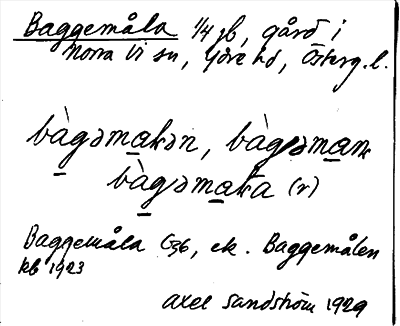 Baggemåla 1/4 jb, gård i
Norra Vi sn, Ydre hd, Österg. l.
bàgəmakən, bàgəmank
bàgəmaka (r)
Baggemåla G36, ek. Baggemålen
kb 1923
Axel Sandström 1929